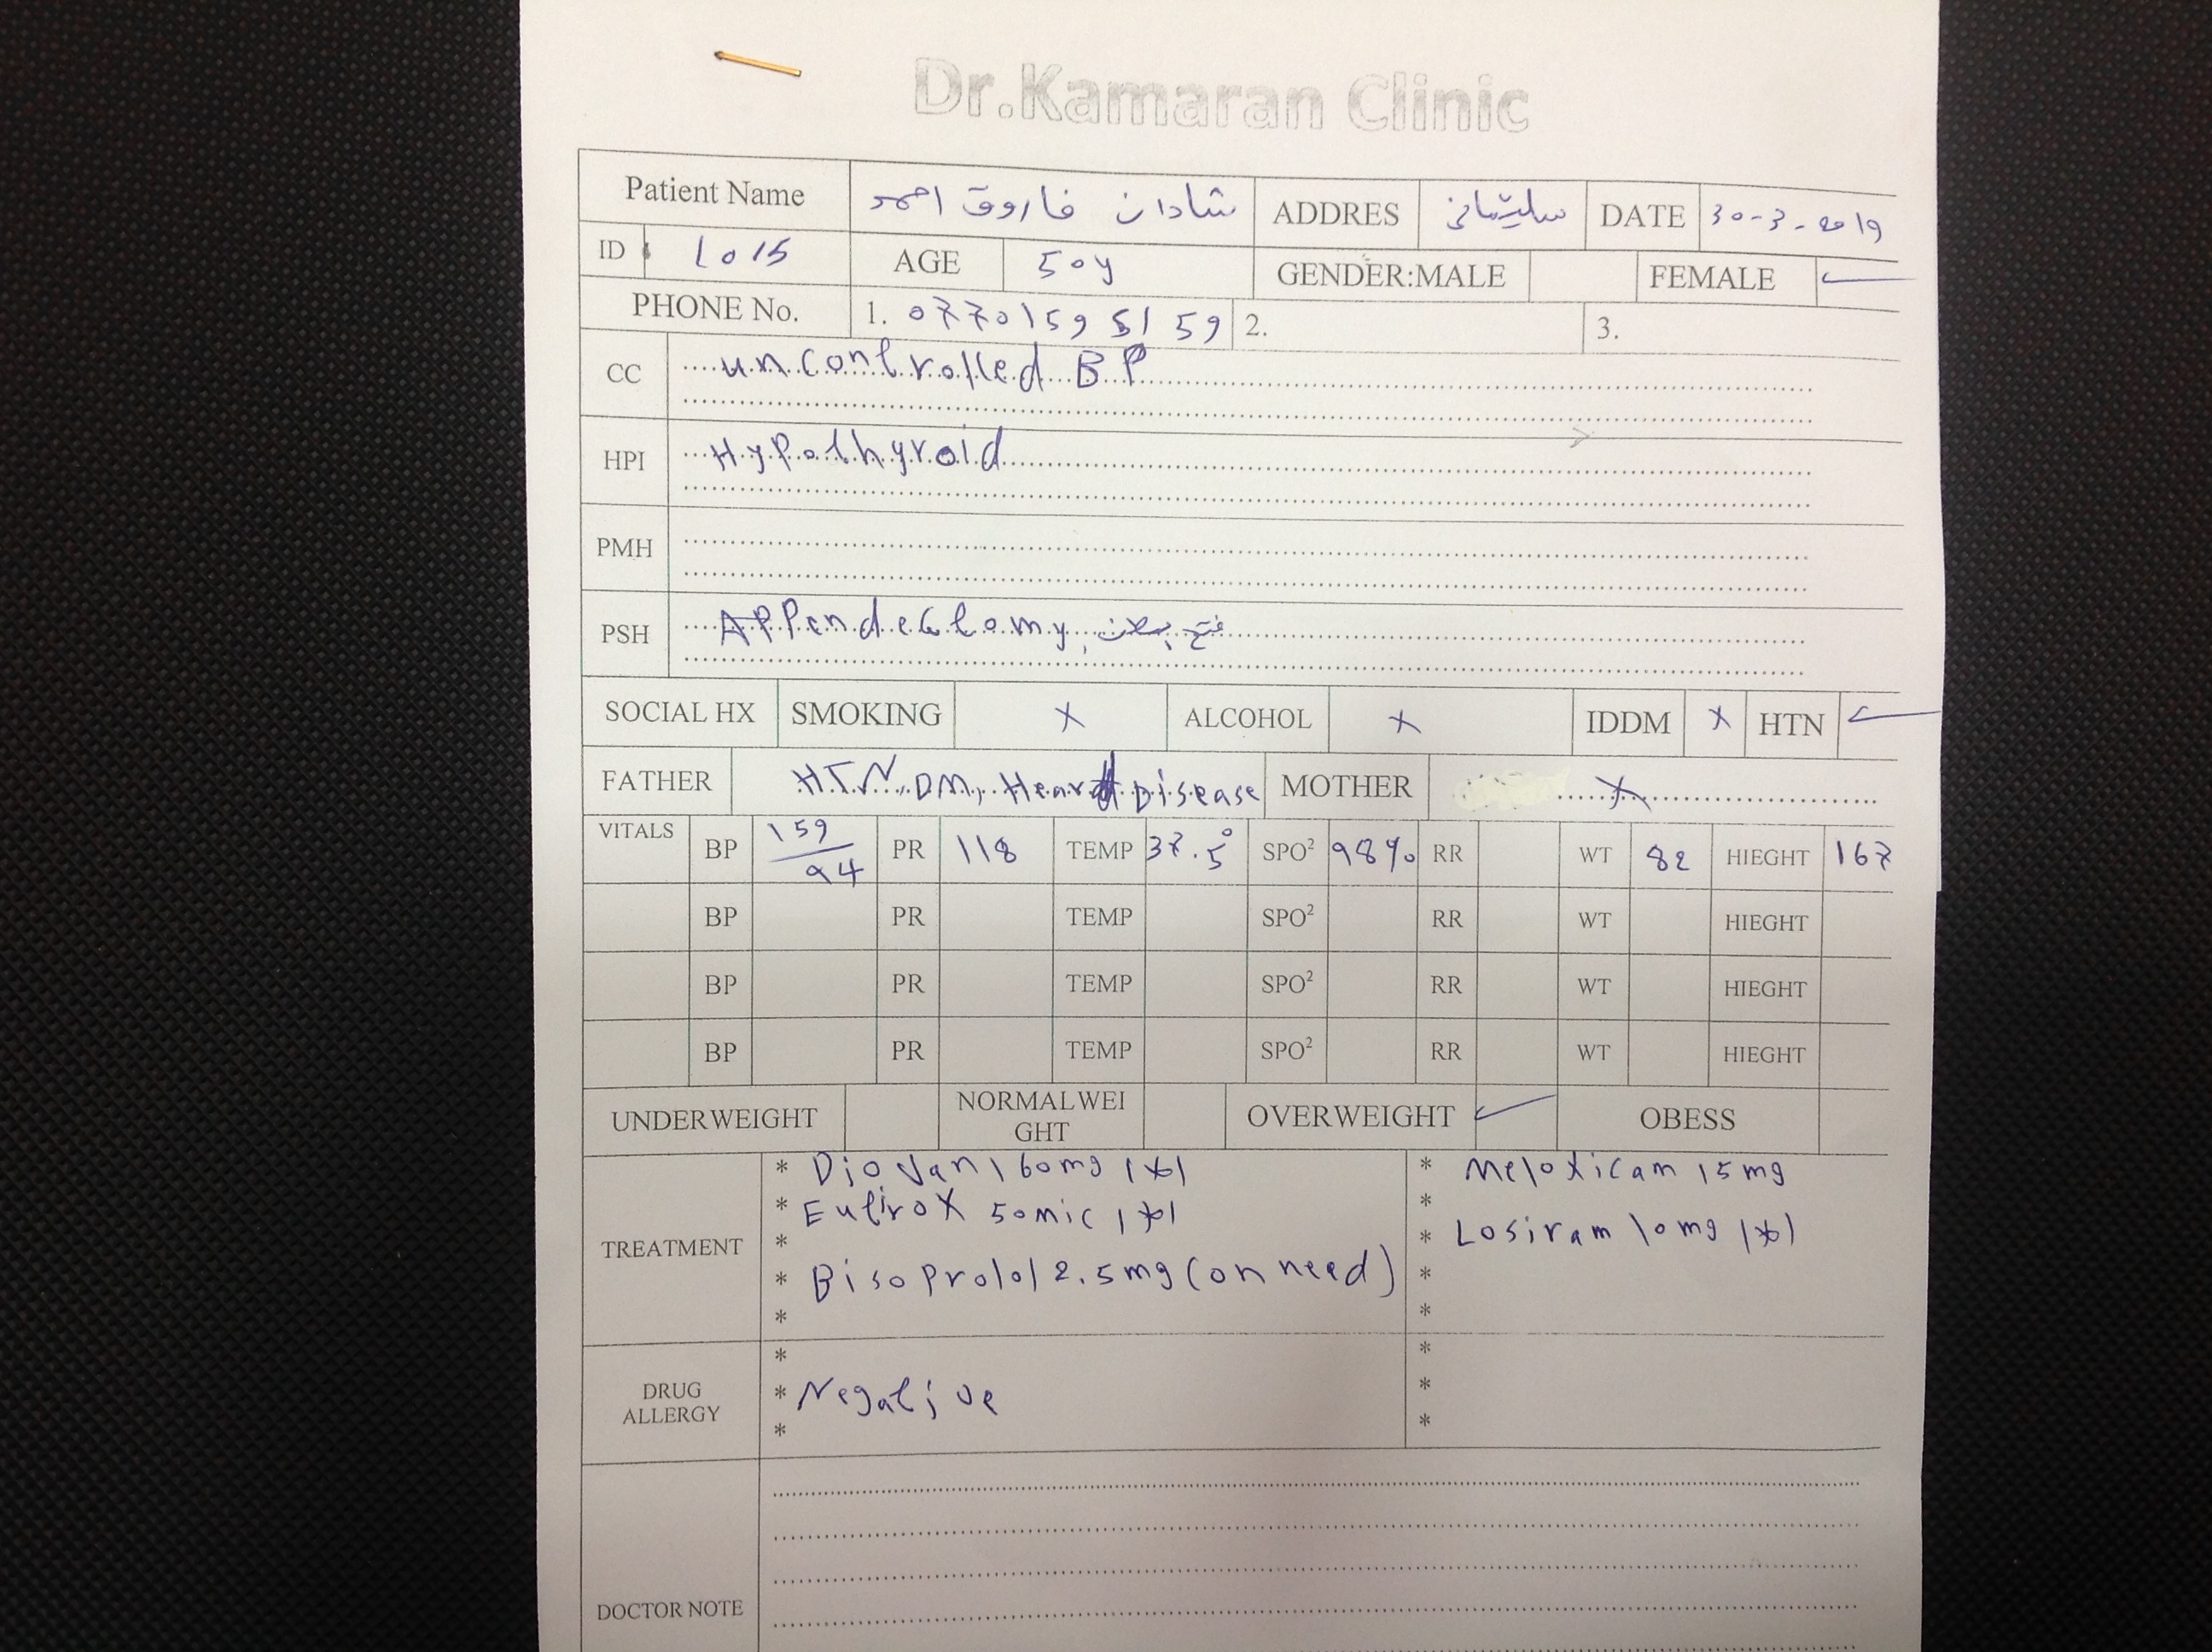 Dr.Kamaran Clinic
Patient Name شادان فاروق احمد ADDRES سلێمانی DATE 30-3-2019
ID 1015 AGE 50y GENDER:MALE FEMALE ✓
PHONE No. 1. 0770 159 51 59 2. 3.
CC un controlled BP
HPI Hypothyroid
PMH
PSH Appendectomy, فتح بطن
SOCIAL HX SMOKING X ALCOHOL X IDDM X HTN ✓
FATHER HTN, DM, Heart Disease MOTHER X
VITALS BP 159/94 PR 118 TEMP 37.5° SPO² 98% RR WT 82 HIEGHT 167
BP PR TEMP SPO² RR WT HIEGHT
BP PR TEMP SPO² RR WT HIEGHT
BP PR TEMP SPO² RR WT HIEGHT
UNDERWEIGHT NORMALWEI
GHT OVERWEIGHT ✓ OBESS
TREATMENT
* Diovan 160mg 1x1
* Eutirox 50mic 1x1
*
* Bisoprolol 2.5mg (on need)
*
* Meloxicam 15mg
*
* Losiram 10mg 1x1
*
*
DRUG
ALLERGY
*
* Negative
*
*
*
*
DOCTOR NOTE